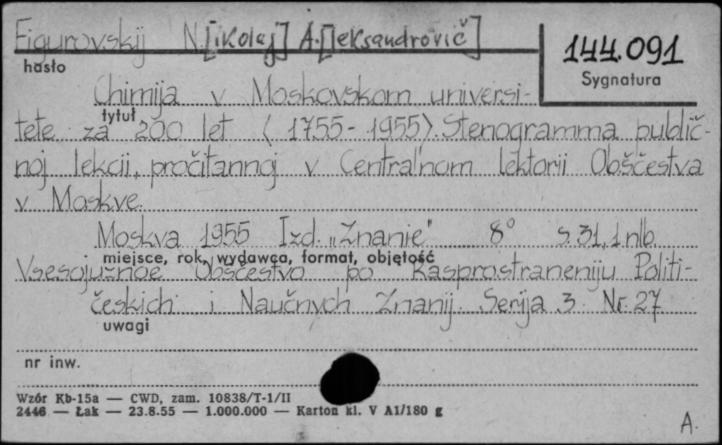 Figurovskij N.[ikolaj] A.[leksandrovič]
144.091
hasło
Sygnatura
Chimija v Moskovskom universi-
tytuł
tete za 200 let (1755-1955). Stenogramma publič-
noj lekcii, pročitannoj v Central'nom lektorii Obščestva
v Moskve.
Moskva 1955 Izd. „Znanie" 8° s.31,1 nlb.
miejsce, rok, wydawca, format, objętość
Vsesojuznoe Obščestvo po Rasprostraneniju Politi-
českich i Naučnych Znanij. Serija 3. Nr. 27
uwagi
nr inw.
Wzór Kb-15a — CWD, zam. 10838/T-1/II
2446 — Łak — 23.8.55 — 1.000.000 — Karton kl. V A1/180 g
A.